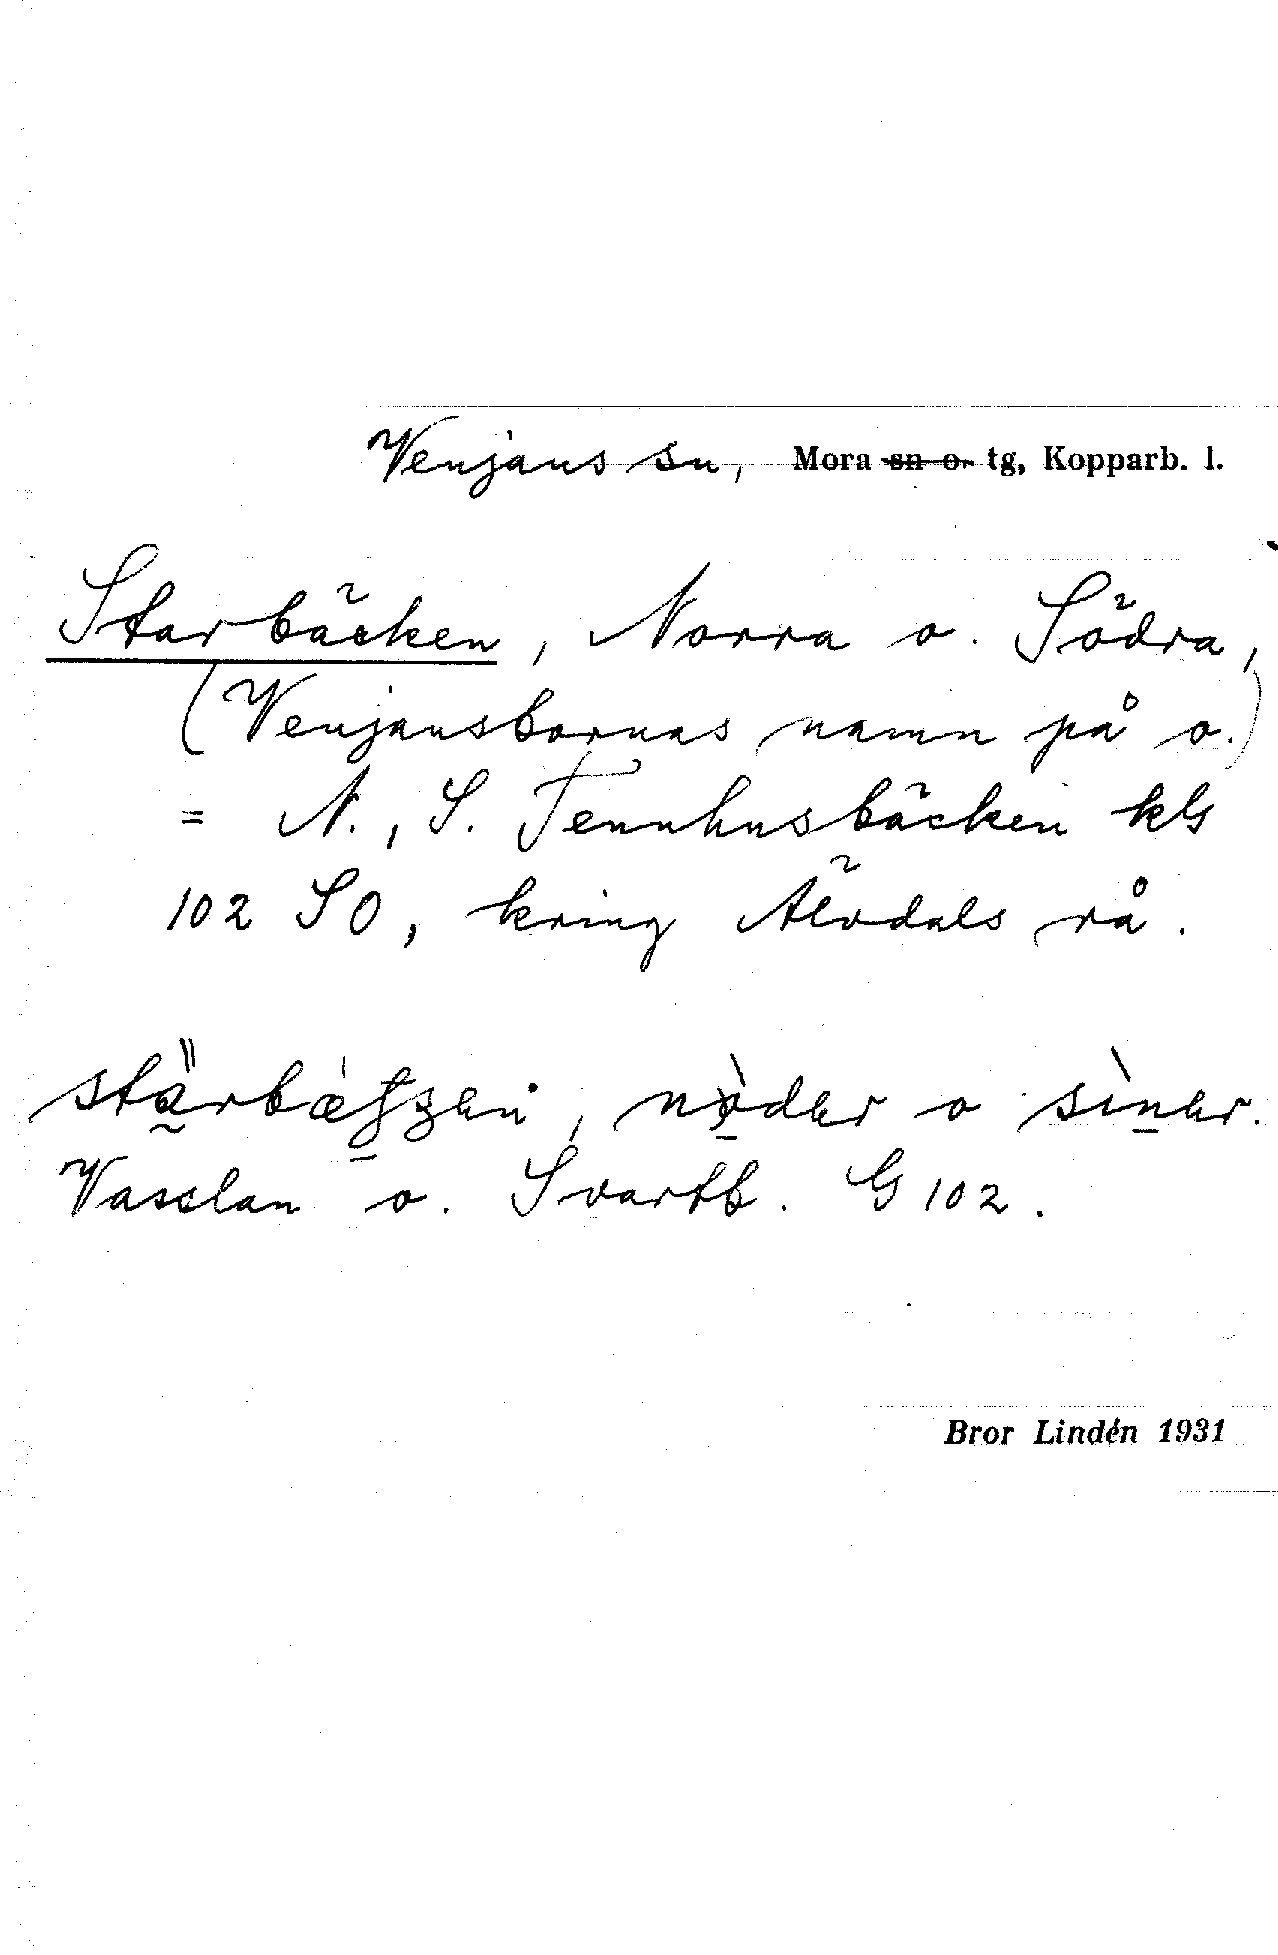 Venjans sn, Mora sn o. tg, Kopparb. l.
Starbäcken, Norra o. Södra,
(Venjansbornas namn på o.)
= N., S. Tennhusbäcken kG
102 SO, kring Älvdals rå.
nòder o sìner.
Vasslan o. Svartb. G 102.
Bror Lindén 1931